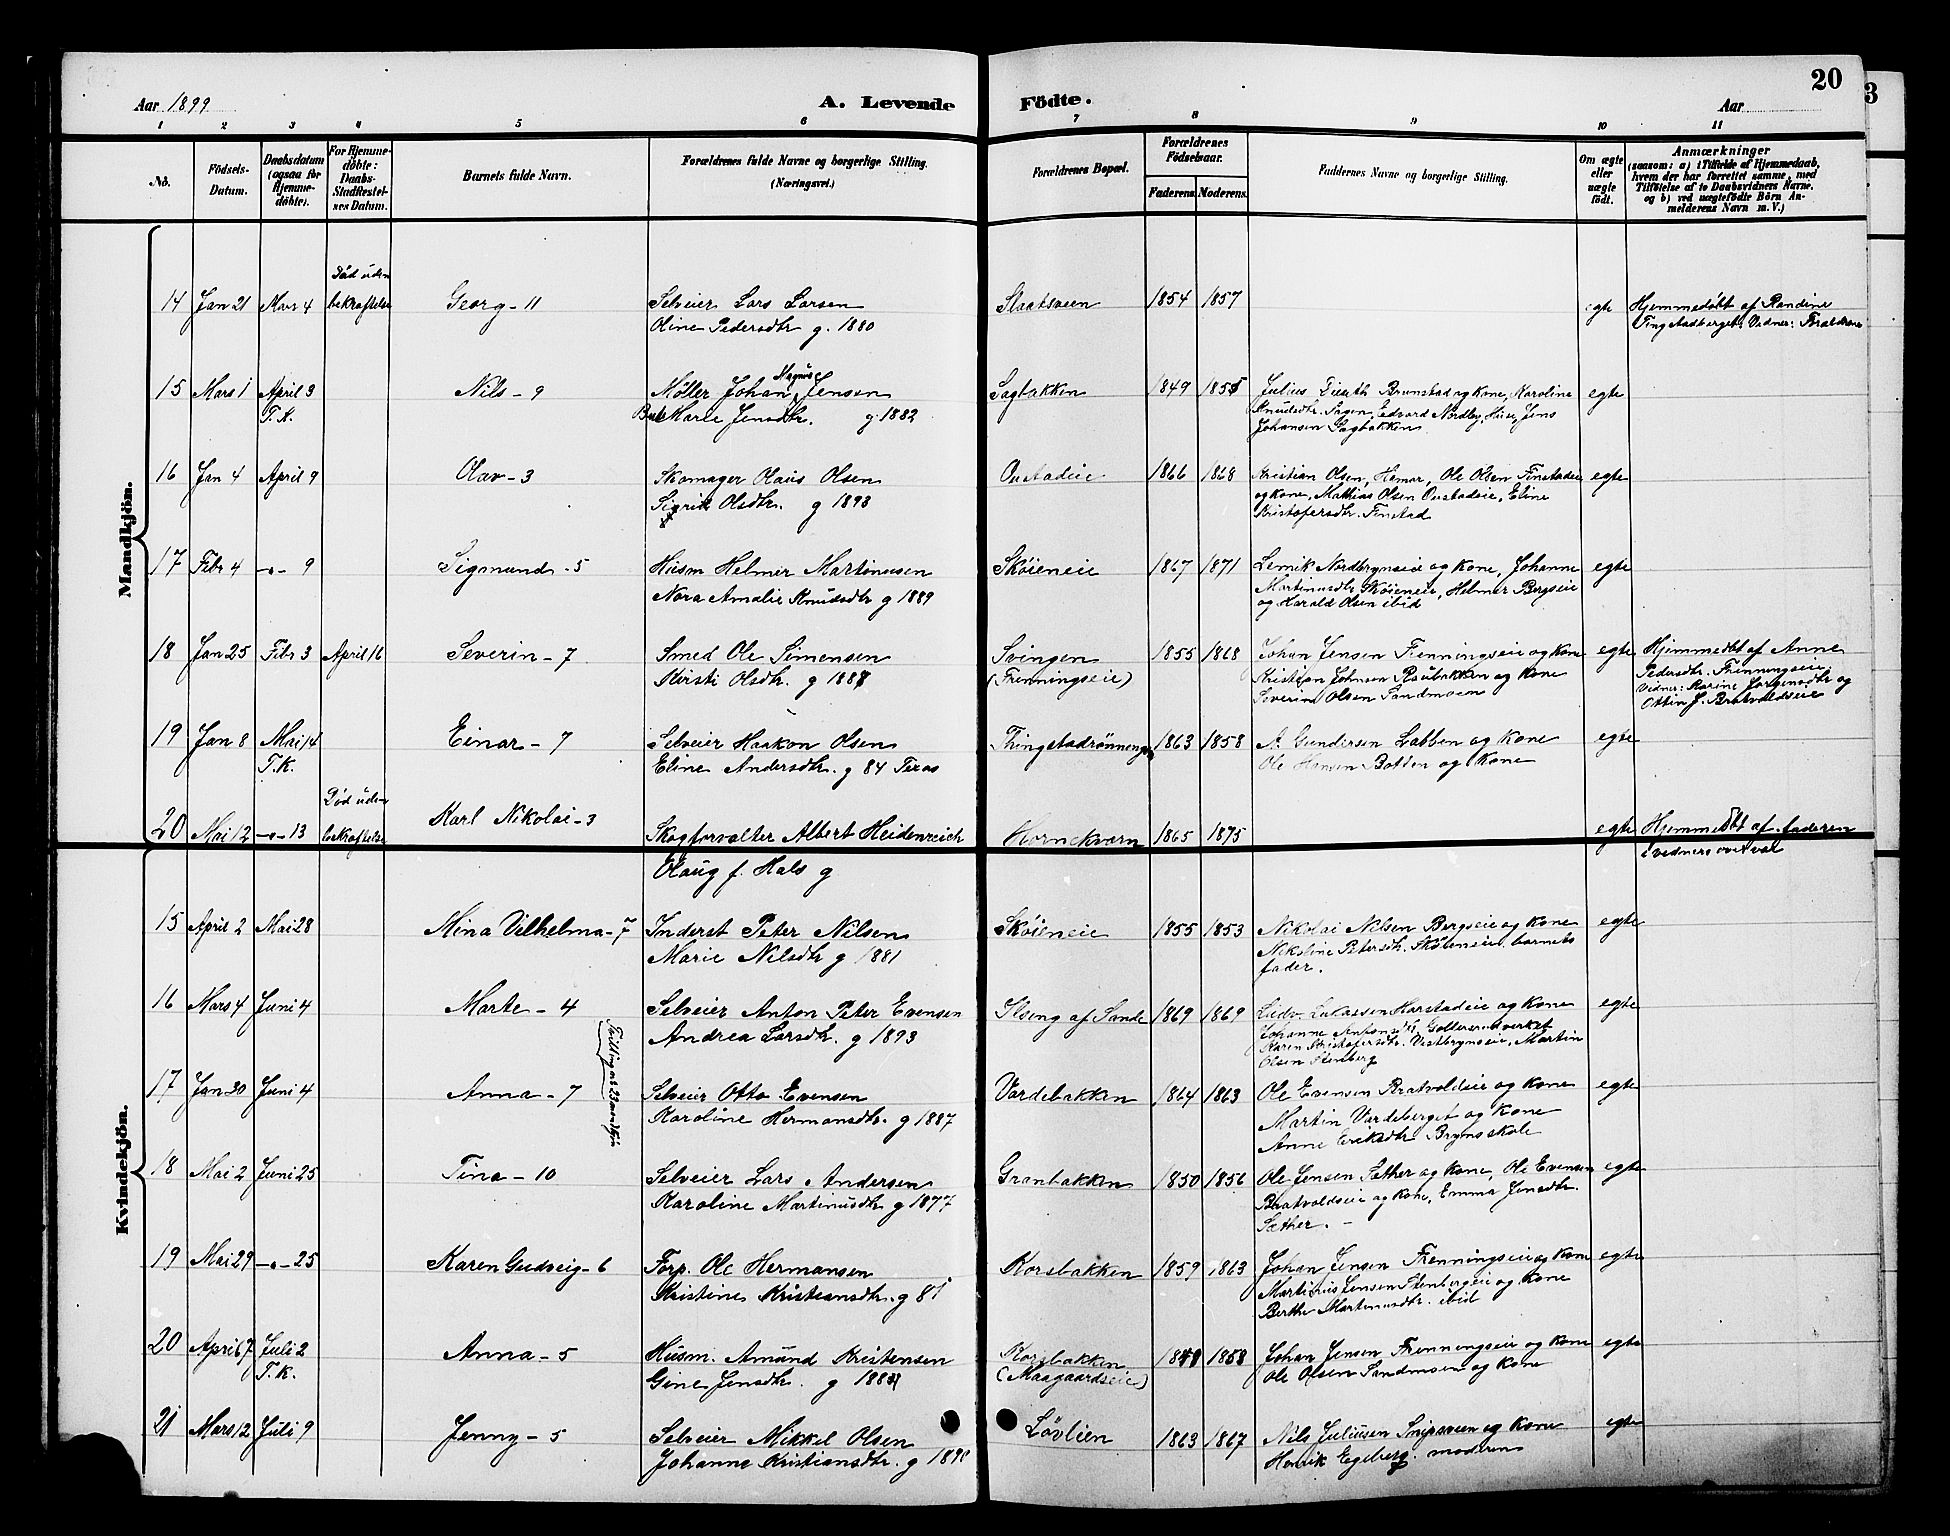 Aar 1899 A. Levende Födte. Aar 20
3
1 2 3 4 5 6 7 8 9 10 11
No. Födsels-Datum. Daabsdatum (ogsaa for Hjemme-döbte). For Hjemme-döbte: Daabs-Stadfæstel-ses Datum. Barnets fulde Navn. Forældrenes fulde Navne og borgerlige Stilling. (Næringsvei.) Forældrenes Bopæl. Forældrenes Födselsaar. Faderens. Moderens. Faddernes Navne og borgerlige Stilling. Om ægte eller uægte födt. Anmærkninger (saasom: a) i Tilfælde af Hjemmedaab, hvem der har forrettet samme, med Tilföielse af to Daabsvidners Navne, og b) ved uægtefödte Börn Anmelderens Navn m. V.)
Mandkjön.
Död uden
14 Jan 21 Mars 4 bekræftelse Georg - 11 Selveier Lars Larsen Slaatsveen 1854 1857 egte Hjemmedøbt af Randine
Oline Pedersdtr g. 1880 Tingstadberget. Vidner: Forældrene
15 Mars 1 April 3 Nils - 9 Møller Johan Magnus Jensen Sagbakken 1849 1855 Julius Brunstad og Kone, Karoline egte
T.K. Marie Jensdtr. g. 1882 Knudsdtr. Sagen, Edvard Nordby, Jens
Johansen Sagbakken
16 Jan 4 April 9 Olav - 3 Skomager Olaus Olsen Onstadeie 1866 1868 Kristian Olsen, Hamar, Ole Olsen Finstadeie egte
Sigrid Olsdtr. g 1893 og Kone, Mathias Olsen Onstadeie, Eline
Kristofersdtr. Finstad
17 Febr 4 -"- 9 Sigmund - 5 Husm Helmer Martinusen Skøieneie 1867 1871 Lemik Nordbryneie og Kone, Johanne egte
Nora Amalie Knudsdtr g 1889 Martinusdtr Skøieneie, Helmer Bergseie
og Harald Olsen ibid
18 Jan 25 Febr 3 April 16 Severin - 7 Smed Ole Simensen Svingen 1855 1868 Johan Jensen Frenningseie og Kone egte Hjemmedøbt af Anne
Kirsti Olsdtr. g 1887 (Frenningseie) Kristian Johnsen og Kone Pedersdtr. Frenningseie
Severin Olsen Sandmoen Vidner: Karine Jørgensdtr og
Ottin J. Bratvoldseie
19 Jan 8 Mai 14 Einar - 7 Selveier Haakon Olsen Thingstadrønningen 1863 1858 A. Gundersen Labben og Kone egte
T.K. Eline Andersdtr. g 84 Ole Hansen Batten og Kone
Død uden
20 Mai 12 -"- 13 bekræftelse Karl Nikolai - 3 Skogforvalter Albert Heidenreich Hornekvern 1865 1875 egte Hjemmedøbt af faderen
Olaug f. Hals g i vidners overvær
Kvindekjön.
15 April 2 Mai 28 Mina Vilhelma - 7 Inderst Peter Nilsen Skøieneie 1855 1853 Nikolai Nilsen Bergseie og Kone egte
Marie Nilsdtr g 1881 Nikoline Petersdtr. Skøieneie, barnets
fader.
16 Mars 4 Juni 4 Marte - 4 Selveier Anton Peter Evensen Ilseng af Sande 1869 1869 Ludv. Lukassen Harstadeie og Kone egte
Andrea Larsdtr. g 1893 Johanne
Karen Kristofersdtr. Vestbrynseie, Martin
Olsen Stenberg
17 Jan 30 Juni 4 Anna - 7 Selveier Otto Evensen Vardebakken 1864 1863 Ole Evensen Bratvoldeie og Kone egte
Karoline Hermansdtr. g 1887 Martin Vardeberget og Kone
Anne Eriksdtr. Bryns skole
18 Mai 2 Juni 25 Tina - 10 Selveier Lars Andersen Granbakken 1850 1856 Ole Jensen Sæther og Kone, Ole Evensen egte
Karoline Martinusdtr g 1877 Bratvoldseie og Kone, Emma Jensdtr.
Sæther. -
19 Mai 29 -"- 25 Karen Gudveig - 6 Forp. Ole Hermansen Korsbakken 1859 1863 Johan Jensen Frenningseie og Kone egte
Kristine Kristiansdtr. g 81 Martinus Jensen Stenbergeie og Kone
Berthe Martinusdtr. ibid
20 April 7 Juli 2 Anna - 5 Husm. Amund Kristensen Korsbakken 1858 Johan Jensen Frenningseie og Kone egte
T.K. Gine Jensdtr. g (Maagaardseie) Ole Olsen Sandmoen og Kone
21 Mars 12 Juli 9 Jenny - 5 Selveier Mikkel Olsen Løvlien 1863 1867 Nils Juliusen Snipsveen og Kone egte
Johanne Kristiansdtr. g Henrik Egeberg. moderen